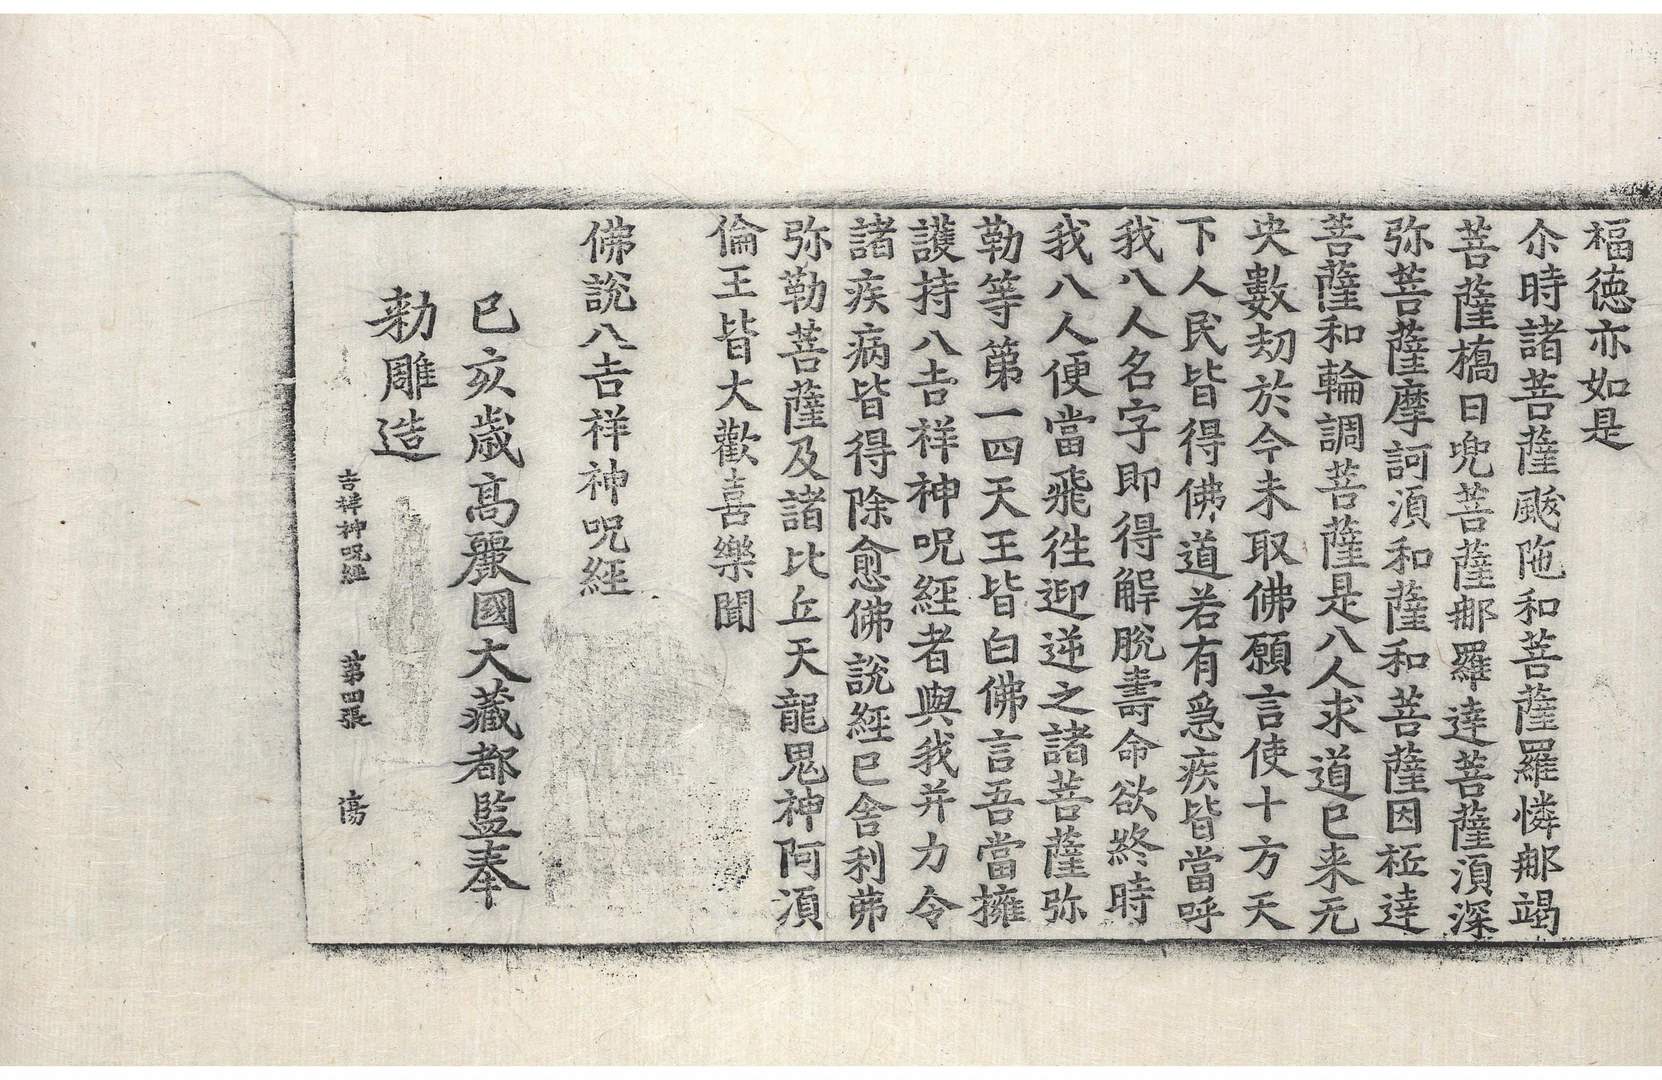 福德亦如是
尒時諸菩薩颰陁和菩薩羅憐那竭
菩薩橋日兜菩薩那羅達菩薩湏深
弥菩薩摩訶湏和薩和菩薩因坻達
菩薩和輪調菩薩是八人求道已来无
央數劫於今未取佛願言使十方天
下人民皆得佛道若有急疾皆當呼
我八人名字即得解脫壽命欲終時
我八人便當飛往迎逆之諸菩薩弥
勒等第一四天王皆白佛言吾當擁
護持八吉祥神呪經者與我并力令
諸疾病皆得除愈佛說經已舍利弗
弥勒菩薩及諸比丘天龍鬼神阿湏
倫王皆大歡喜樂聞
佛說八吉祥神呪經
己亥歲高麗國大藏都監奉
勑雕造
吉祥神呪經 第四張 傷